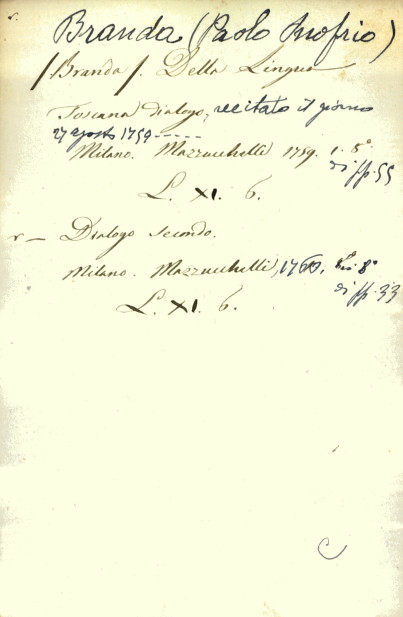 Branda (Paolo Onofrio)
/Branda/. Della Lingua
Toscana dialogo, recitato il giorno
27 agosto 1759 -----
Milano. Mazzucchelli 1759. i. 8°
di pp. 55
L. XI. 6.
r — Dialogo secondo.
Milano. Mazzucchelli, 1760. in 8°
di pp. 33
L. XI. 6.
C